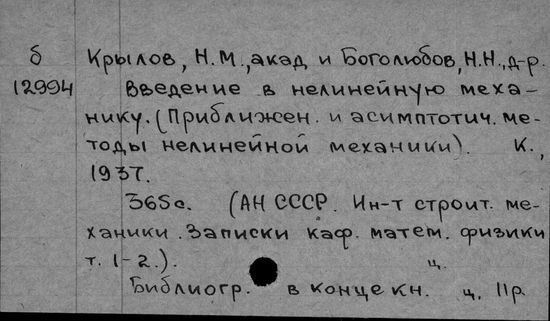 б Крылов, Н.М., акад. и Боголюбов, Н.Н., д-р.
12994 Введение в нелинейную меха-
нику. (Приближен. и асимптотич. ме-
тоды нелинейной механики). К.,
1937.
365с. (АН СССР. Ин-т строит. ме-
ханики. Записки каф. матем. физики
т. 1-2.). ц.
Библиогр. в конце кн. ц. 11р.